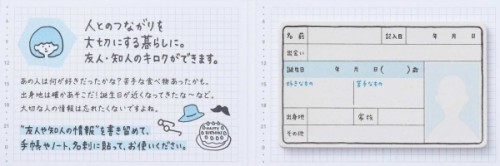 人とのつながりを
大切にする暮らしに。
友人・知人のキロクができます。
あの人は何が好きだったかな？苦手な食べ物あったかも。
出身地は確かあそこだ！誕生日が近くなってきたな～など。
大切な人の情報は忘れたくないですよね。
"友人や知人の情報"を書き留めて、
手帳やノート、名刺に貼って、お使いください。
HAPPY BIRTHDAY
名前
記入日 年 月 日
出会い
誕生日 年 月 日( )歳
好きなもの
苦手なもの
出身地
家族
その他